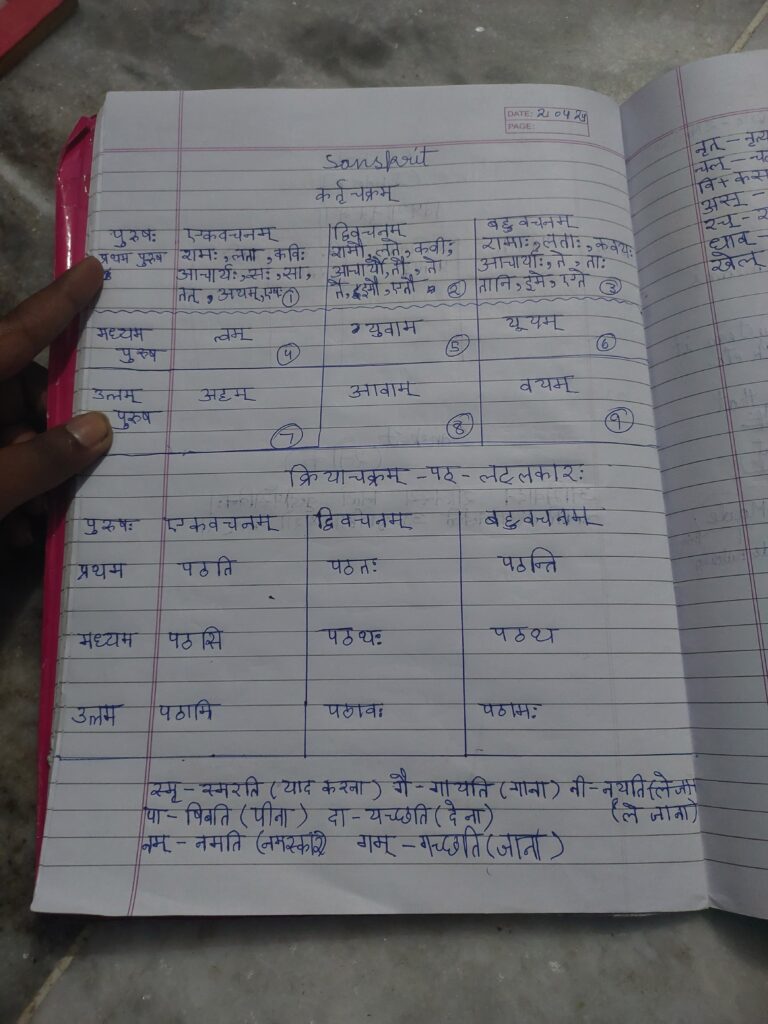 DATE: 21 04 25
PAGE:
Sanskrit
कर्तृचक्रम्
पुरुषः एकवचनम् द्विवचनम् बहुवचनम्
प्रथम पुरुष रामः, लता, कविः रामौ, लते, कवी, रामाः, लताः, कवयः
आचार्यः, सः, सा, आचार्यौ, तौ, ते आचार्याः, ते, ताः
तत्, अयम्, एषः 1 ते, इमौ, एतौ 2 तानि, इमे, एते 3
मध्यम त्वम् युवाम् यूयम्
पुरुष 4 5 6
उत्तम् अहम् आवाम् वयम्
पुरुष 7 8 9
क्रियाचक्रम् - पठ - लट्लकारः
पुरुषः एकवचनम् द्विवचनम् बहुवचनम्
प्रथम पठति पठतः पठन्ति
मध्यम पठसि पठथः पठथ
उत्तम पठामि पठावः पठामः
स्मृ - स्मरति (याद करना) गै - गायति (गाना) नी - नयति (लेजा
पा - पिबति (पीना) दा - यच्छति (देना) (ले जाना)
नम् - नमति (नमस्कार) गम् - गच्छति (जाना)
नृत् - नृत्य
चल् -
अस् -
धाव् -
खेल्